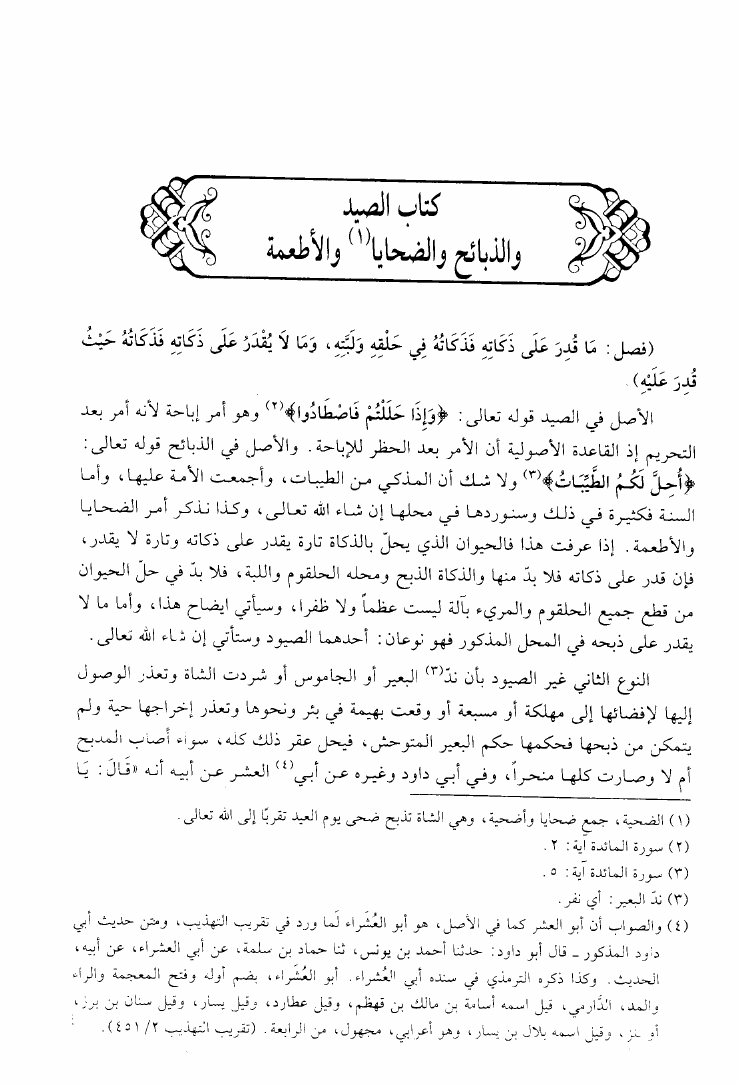 كتاب الصيد
والذبائح والضحايا(١) والأطعمة
(فصل: مَا قُدِرَ عَلَى ذَكَاتِهِ فَذَكَاتُهُ فِي حَلْقِهِ وَلَبَّتِهِ، وَمَا لَا يُقْدَرُ عَلَى ذَكَاتِهِ فَذَكَاتُهُ حَيْثُ
قُدِرَ عَلَيْهِ).
الأصل في الصيد قوله تعالى: ﴿وَإِذَا حَلَلْتُمْ فَاصْطَادُوا﴾(٢) وهو أمر إباحة لأنه أمر بعد
التحريم إذ القاعدة الأصولية أن الأمر بعد الحظر للإباحة. والأصل في الذبائح قوله تعالى:
﴿أُحِلَّ لَكُمُ الطَّيِّبَاتُ﴾(٣) ولا شك أن المذكي من الطيبات، وأجمعت الأمة عليها، وأما
السنة فكثيرة في ذلك وسنوردها في محلها إن شاء الله تعالى، وكذا نذكر أمر الضحايا
والأطعمة. إذا عرفت هذا فالحيوان الذي يحلّ بالذكاة تارة يقدر على ذكاته وتارة لا يقدر،
فإن قدر على ذكاته فلا بدّ منها والذكاة الذبح ومحله الحلقوم واللبة، فلا بدّ في حلّ الحيوان
من قطع جميع الحلقوم والمريء بآلة ليست عظماً ولا ظفرا، وسيأتي ايضاح هذا، وأما ما لا
يقدر على ذبحه في المحل المذكور فهو نوعان: أحدهما الصيود وستأتي إن شاء الله تعالى.
النوع الثاني غير الصيود بأن ندّ(٣) البعير أو الجاموس أو شردت الشاة وتعذر الوصول
إليها لإفضائها إلى مهلكة أو مسبعة أو وقعت بهيمة في بئر ونحوها وتعذر إخراجها حية ولم
يتمكن من ذبحها فحكمها حكم البعير المتوحش، فيحل عقر ذلك كله، سواء أصاب المدبح
أم لا وصارت كلها منحراً، وفي أبي داود وغيره عن أبي(٤) العشر عن أبيه أنه «قَالَ: يَا
(١) الضحية، جمع ضحايا وأضحية، وهي الشاة تذبح ضحى يوم العيد تقربًا إلى الله تعالى.
(٢) سورة المائدة آية: ٢.
(٣) سورة المائدة آية: ٥.
(٣) ندّ البعير: أي نفر.
(٤) والصواب أن أبو العشر كما في الأصل، هو أبو العُشَراء لَما ورد في تقريب التهذيب، ومتن حديث أبي
داود المذكور ـ قال أبو داود: حدثنا أحمد بن يونس، ثنا حماد بن سلمة، عن أبي العشراء، عن أبيه،
الحديث. وكذا ذكره الترمذي في سنده أبي العُشراء. أبو العُشَراء، بضم أوله وفتح المعجمة والراء
والمد، الدَّارمي، قيل اسمه أسامة بن مالك بن قهطم، وقيل عطارد، وقيل يسار، وقيل سنان بن برز،
أو بلز، وقيل اسمه بلال بن يسار، وهو أعرابي، مجهول، من الرابعة. (تقريب التهذيب ٢/ ٤٥١).